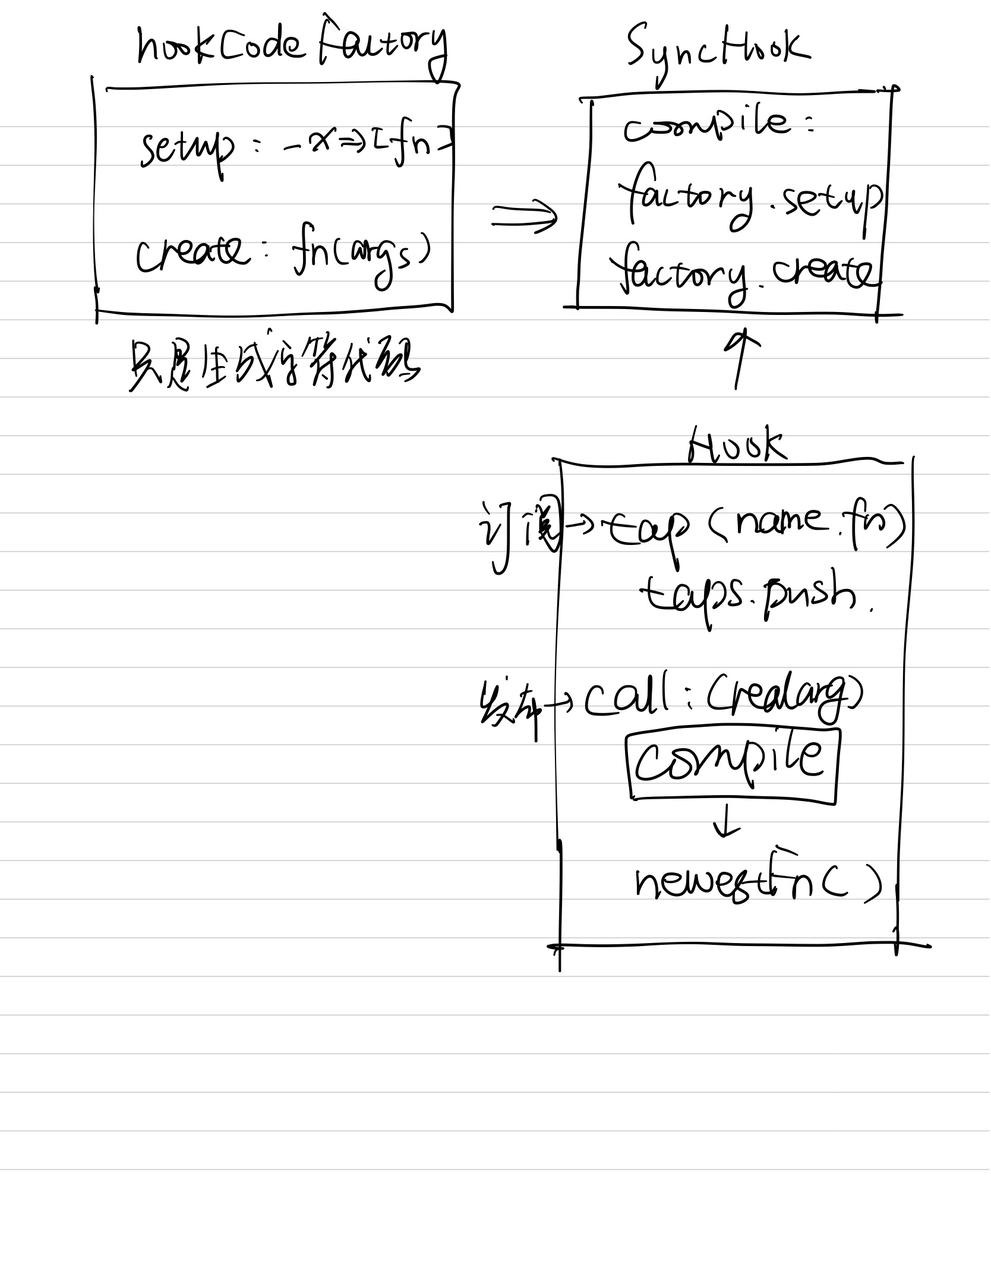 hookCodeFactory
setup: _x⇒[fn]
create: fn(args)
只是生成字符代码
SyncHook
compile:
factory.setup
factory.create
Hook
订阅→tap(name.fn)
taps.push.
发布→call:(realarg)
compile
newestFn()